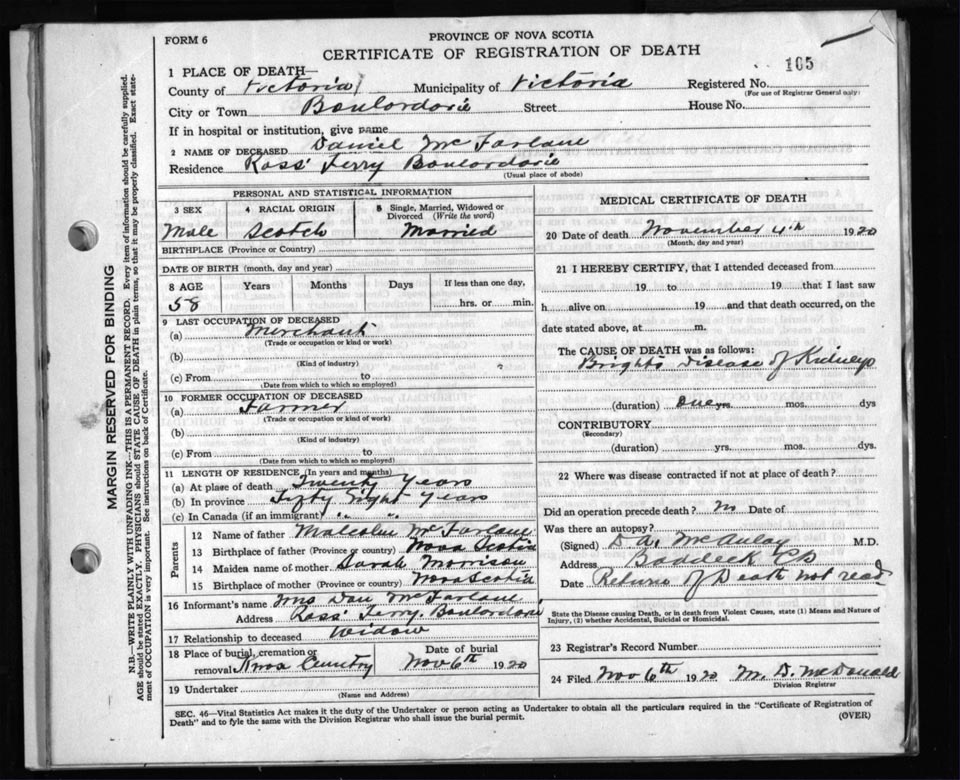 FORM 6
PROVINCE OF NOVA SCOTIA
CERTIFICATE OF REGISTRATION OF DEATH
105
1 PLACE OF DEATH—
County of Victoria Municipality of Victoria Registered No.
(For use of Registrar General only)
City or Town Boulordorie Street House No.
If in hospital or institution, give name
2 NAME OF DECEASED Daniel McFarlane
Residence Ross' Ferry Boulordorie
(Usual place of abode)
PERSONAL AND STATISTICAL INFORMATION
3 SEX 4 RACIAL ORIGIN 5 Single, Married, Widowed or Divorced (Write the word)
Male Scotch Married
BIRTHPLACE (Province or Country)
DATE OF BIRTH (month, day and year)
8 AGE Years Months Days If less than one day,
58 hrs. or min.
9 LAST OCCUPATION OF DECEASED
(a) Merchant
(Trade or occupation or kind or work)
(b)
(Kind of industry)
(c) From to
(Date from which to which so employed)
10 FORMER OCCUPATION OF DECEASED
(a) Farmer
(Trade or occupation or kind of work)
(b)
(Kind of industry)
(c) From to
(Date from which to which so employed)
11 LENGTH OF RESIDENCE (In years and months)
(a) At place of death Twenty Years
(b) In province Fifty Eight Years
(c) In Canada (if an immigrant) " "
Parents
12 Name of father Malcolm McFarlane
13 Birthplace of father (Province or country) Nova Scotia
14 Maiden name of mother Sarah Morrison
15 Birthplace of mother (Province or country) Nova Scotia
16 Informant's name Mrs Dan McFarlane
Address Ross' Ferry, Boulordorie
17 Relationship to deceased Widow
18 Place of burial, cremation or removal Cemetry
Date of burial
Nov 6th 1920
19 Undertaker
(Name and Address)
MEDICAL CERTIFICATE OF DEATH
20 Date of death November 4th 1920
(Month, day and year)
21 I HEREBY CERTIFY, that I attended deceased from
19 to 19 that I last saw
h alive on 19 and that death occurred, on the
date stated above, at m.
The CAUSE OF DEATH was as follows:
Brights Disease of Kidneys
(duration) One yrs. mos. dys
CONTRIBUTORY
(Secondary)
(duration) yrs. mos. dys.
22 Where was disease contracted if not at place of death?
Did an operation precede death? no Date of
Was there an autopsy?
(Signed) D. A. McAulay M.D.
Address Baddeck CB
Date Return of Death not read
State the Disease causing Death, or in death from Violent Causes, state (1) Means and Nature of
Injury, (2) whether Accidental, Suicidal or Homicidal.
23 Registrar's Record Number
24 Filed Nov 6th 1920 M. D. McDonald
Division Registrar
SEC. 46—Vital Statistics Act makes it the duty of the Undertaker or person acting as Undertaker to obtain all the particulars required in the "Certificate of Registration of
Death" and to fyle the same with the Division Registrar who shall issue the burial permit.
(OVER)
MARGIN RESERVED FOR BINDING
N.B.—WRITE PLAINLY WITH UNFADING INK—THIS IS A PERMANENT RECORD. Every item of information should be carefully supplied.
AGE should be stated EXACTLY. PHYSICIANS should STATE CAUSE OF DEATH in plain terms, so that it may be properly classified. Exact state-
ment of OCCUPATION is very important. See instructions on back of Certificate.